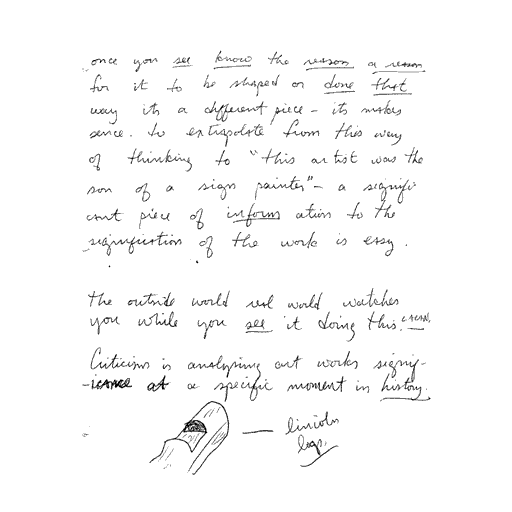 once you see know the reason a reason
for it to be shaped or done that
way its a different piece - its makes
sence. to extrapolate from this way
of thinking to "this artist was the
son of a sign painter" - a signifi
cant piece of inform ation to the
signification of the work is easy.
the outside world real world watches
you while you see it doing this. LACAN.
Criticism is analysing art works signif-
-icance at a specific moment in history.
lincoln
legs.